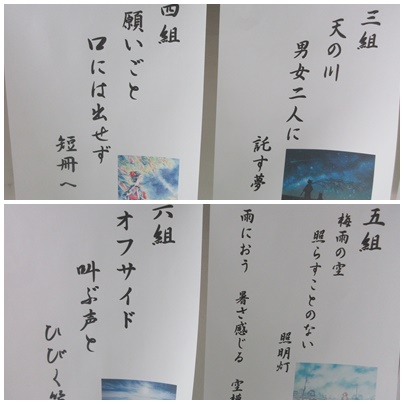 四組
願いごと
口には出せず
短冊へ
三組
天の川
男女二人に
託す夢
六組
オフサイド
叫ぶ声と
ひびく
五組
梅雨の空
照らすことのない
照明灯
雨におう 暑さ感じる